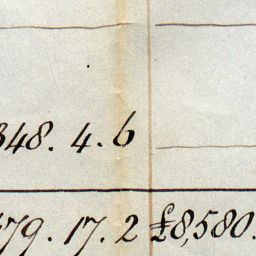 348. 4. 6
479. 17. 2 £8,580.